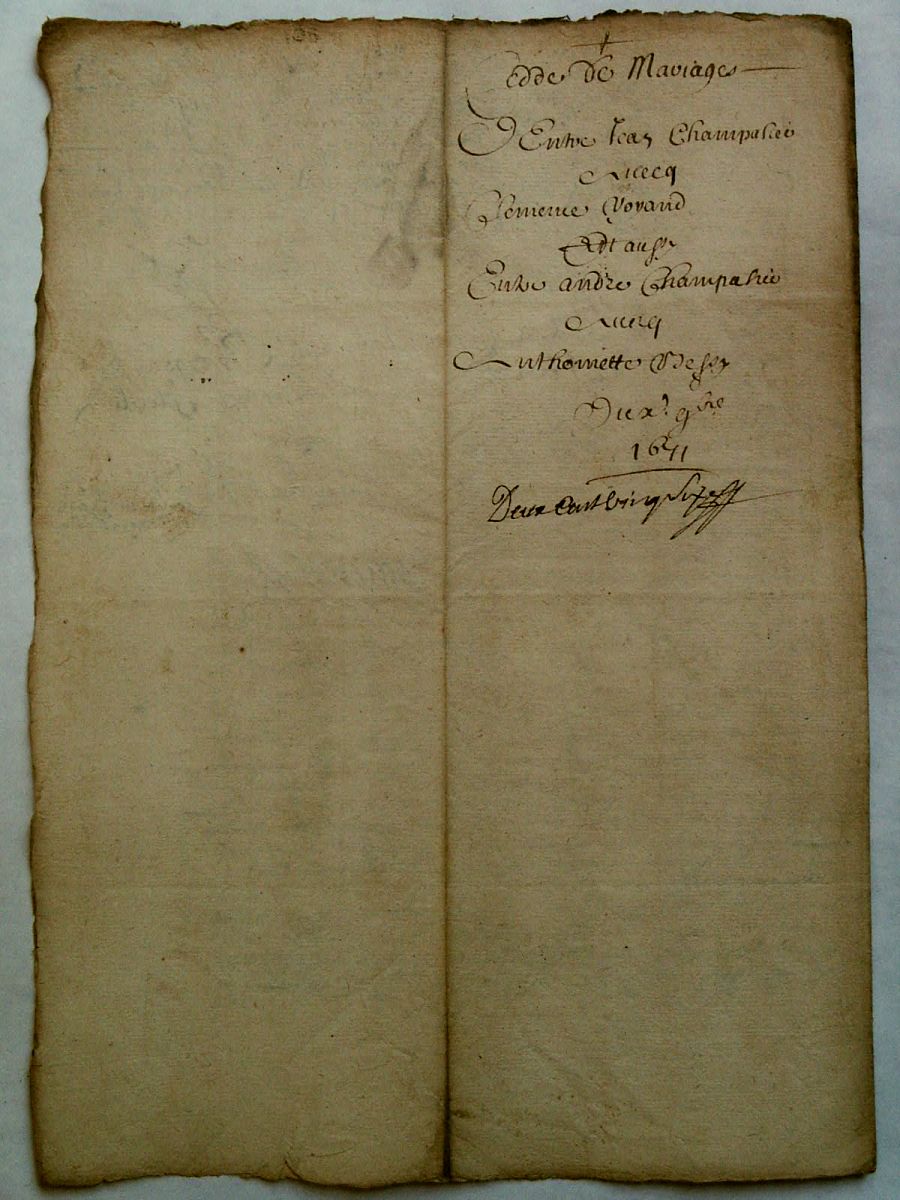 Cedde de Mariages
D'Entre Jean Champaliee
Avecq
Clemence Vovand
Et aussy
Entre andre Champaliee
Avecq
Anthoinette
Du x. 9bre
1671
Deux Cent Vingt Sept